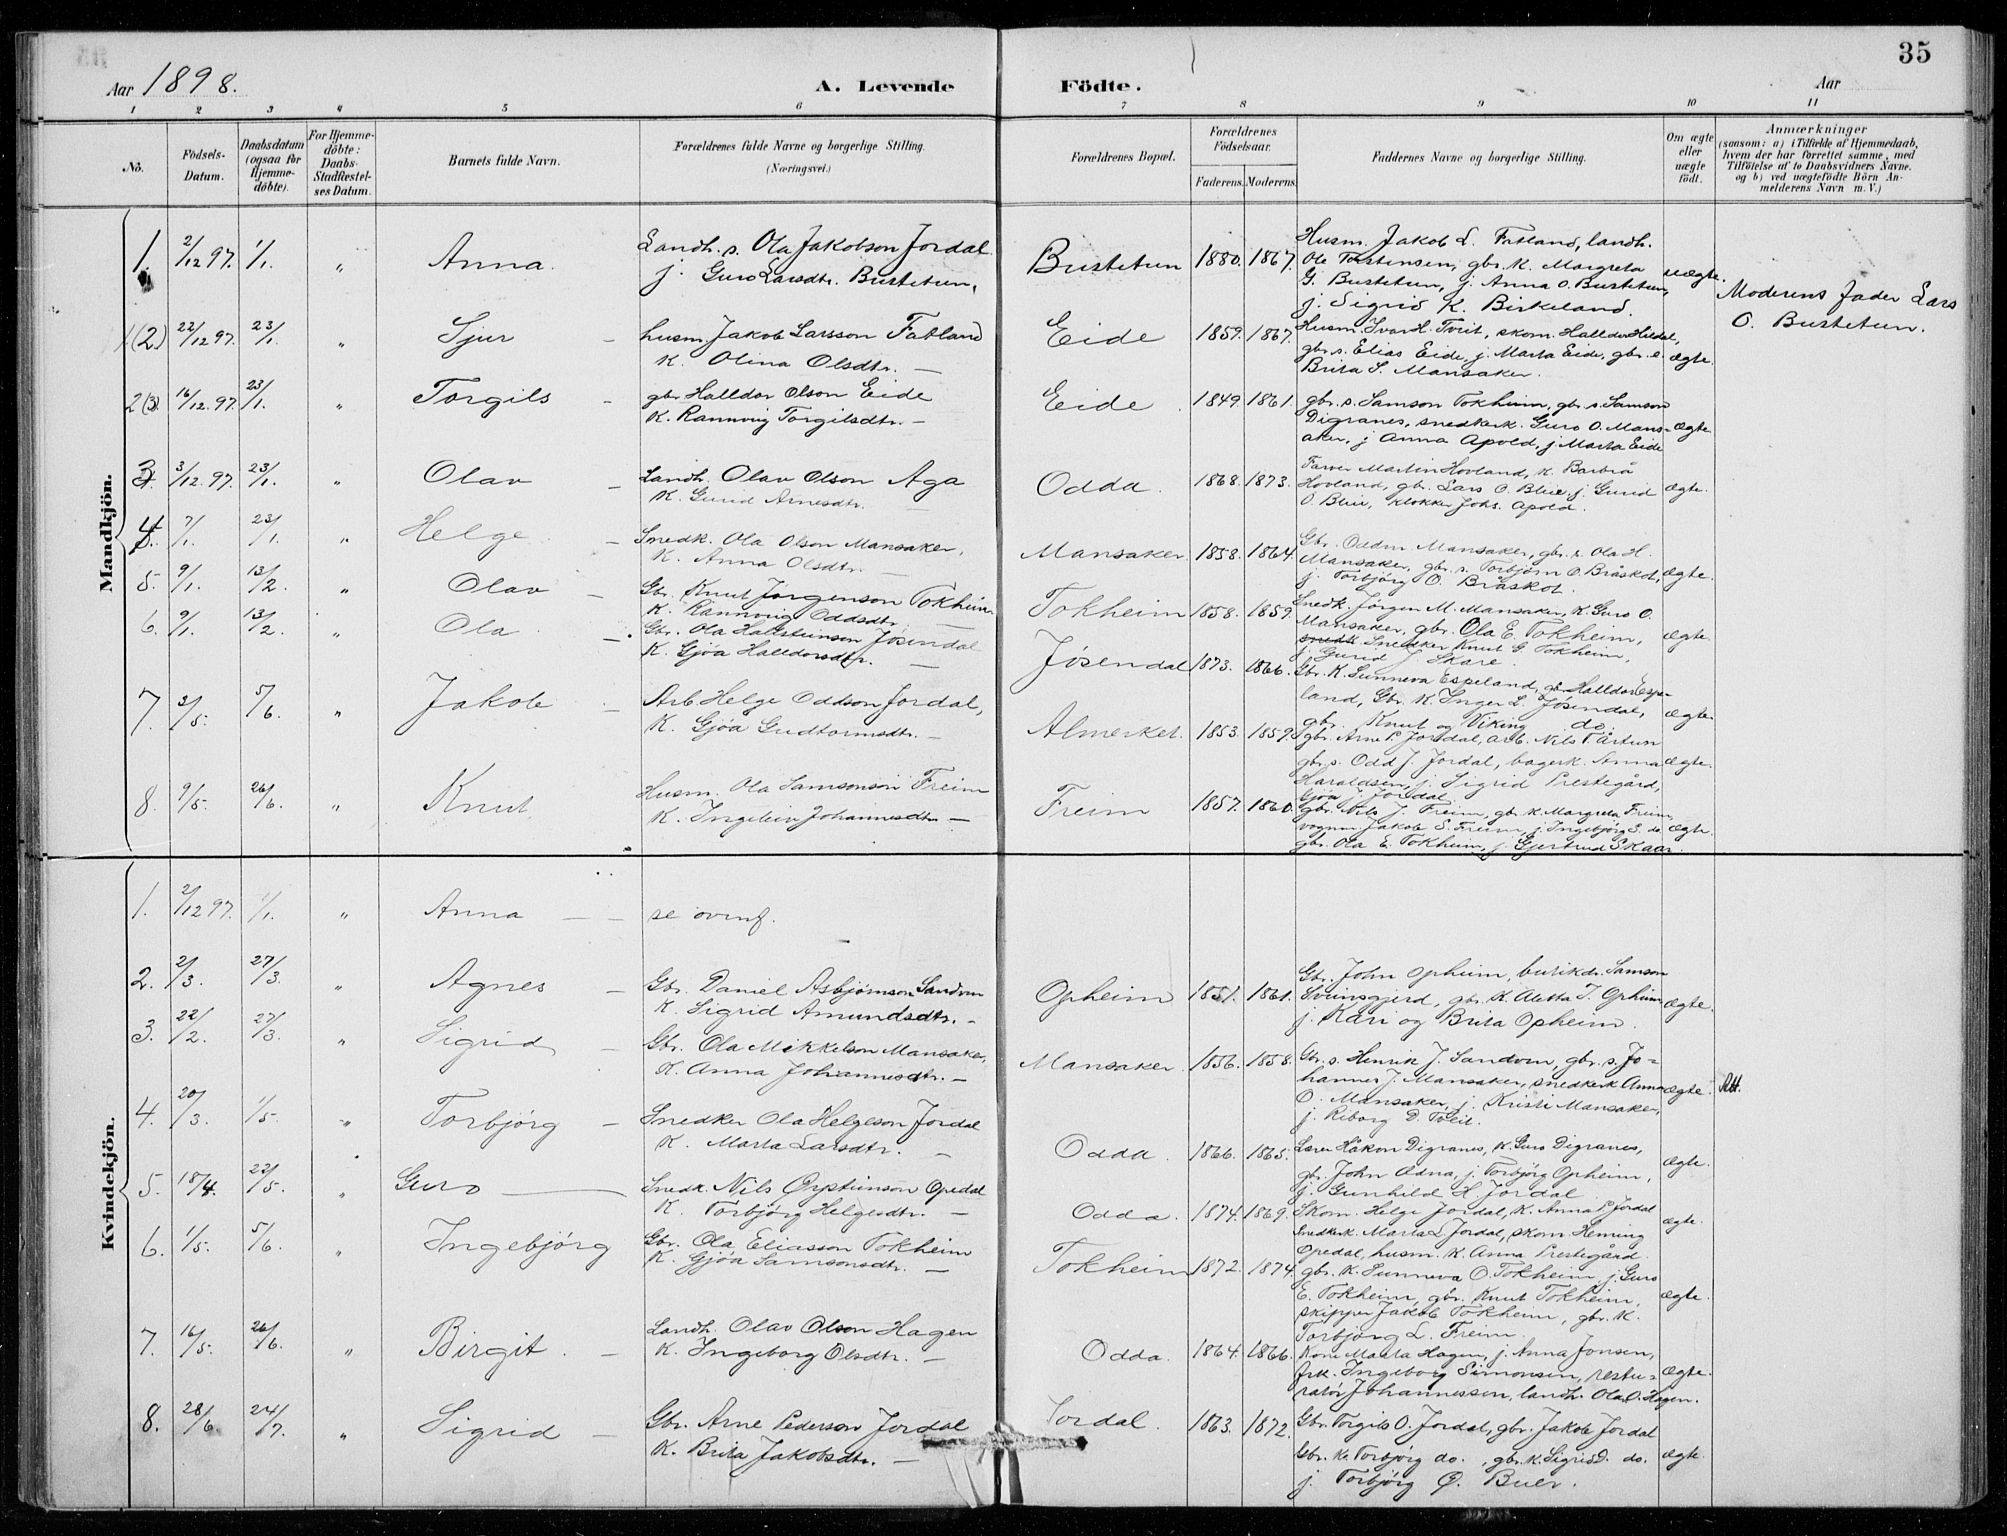 35
Aar 1898.
A. Levende Födte.
Aar
1 2 3 4 5 6 7 8 9 10 11
No.
Födsels-Datum.
Daabsdatum (ogsaa for Hjemmedöbte).
For Hjemmedöbte: Daabs-Stadfestelses Datum.
Barnets fulde Navn.
Forældrenes fulde Navne og borgerlige Stilling. (Næringsvei.)
Forældrenes Bopæl.
Forældrenes Födselsaar.
Faderens. Moderens.
Faddernes Navne og borgerlige Stilling.
Om ægte eller uægte födt.
Anmærkninger
(saasom: a) i Tilfælde af Hjemmedaab, hvem der har forrettet samme, med Tilföielse af to Daabsvidners Navne. og b) ved uægtefödte Börn Anmelderens Navn m. V.)
Mandkjön.
1. 2/12 97. 1/1. " Anna.
Landh. s. Ola Jakobson Jordal
j. Guro Larsdtr. Bustetun.
Bustetun 1880. 1867.
Husm. Jakob L. Fatland, landh.
Ole Torstensen, gbr. k. Margreta
G. Bustetun, j. Anna O. Bustetun,
j. Sigrid K. Birkeland.
uægte.
Moderens Fader Lars
O. Bustetun.
1(2) 22/12 97. 23/1. " Sjur
husm. Jakob Larsson Fatland
K. Olina Olsdtr.
Eide 1859. 1867.
Husm. Ivar H. Tveit, skom. Halldor Hildal,
gbr. s. Elias Eide, j. Marta Eide, gbr. e.
Brita S. Mansaker.
ægte.
2(3) 16/12 97. 23/1. " Torgils
gbr. Halldor Olson Eide
K. Rannveig Torgilsdtr.
Eide 1849 1861.
gbr. s. Samson Tokheim, gbr. s. Samson
Digranes, snedkerk. Guro O. Mans-
aker, j Anna Apold, j. Marta Eide
ægte
3 3/12 97. 23/1. " Olav
Landh. Olav Olson Aga
K. Gunid Arnesdtr.
Odda. 1868. 1873.
Farver Martin Hovland, k. Barbra
Hovland, gbr. Lars O. Blie, j. Gurid
O. Blie, klokker Johs. Apold.
ægte.
4 7/1. 23/1. " Helge
Snedk. Ola Olson Mansaker.
K. Anna Olsdtr.
Mansaker. 1858. 1864.
Gbr. Oddm Mansaker, gbr. s. Ola H.
Mansaker, gbr. s. Torbjörn O. Bråskot,
j. Torbjörg O. Bråskot.
ægte.
5. 9/1. 13/2. " Olav
Gbr. Knut Jørgenson Tokheim
K. Rannveig Oddsdtr.
Tokheim 1858. 1859.
Snedk. Jörgen M. Mansaker, K. Guro O.
Mansaker, gbr. Ola E. Tokheim,
snedk Snedker Knut G. Tokheim,
j. Gurid J Skare.
ægte
6. 9/1. 13/2. " Ola
Gbr. Ola Hallsteinson Jösendal
K. Gjöa Halldorsdtr.
Jösendal 1873. 1866.
Gbr. K. Sunneva Espeland, gbr Halldor Espe-
land, Gbr. K. Inger L. Jösendal,
gbr. Knut og Viking do.
ægte.
7. 3/5. 5/6. " Jakob
Arb. Helge Oddson Jordal,
K. Gjöa Gudtormsdtr.
Almerket. 1853. 1859.
gbr. Arne P. Jordal, arb. Nils T. Årtun
gbr. s. Odd J. Jordal, bagerk. Anna
Haraldsen, j. Sigrid Prestegård,
Gjöa J. Jordal
ægte.
8. 9/5. 26/6. " Knut
Husm. Ola Samsonson Freim
K. Ingebein Johannesdtr.
Freim 1857. 1860.
gbr. Nils J. Freim, gbr. k. Margreta Freim,
vognm. Jakob S. Freim, j. Ingebjörg S. do
gbr. Ola E. Tokheim, j. Gjertrud Skaar.
ægte.
Kvindekjön.
1. 2/12 97. 1/1. " Anna
se ovenf.
2. 2/3. 27/3. " Agnes
Gbr. Daniel Asbjörnson Sandven
K. Sigrid Amundsdtr.
Opheim 1851. 1861.
Gbr. John Opheim, butikdr. Samson
Sveinsgjerd, gbr. K. Aletta T. Opheim
j. Kari og Brita Opheim.
ægte.
3. 22/2. 27/3. " Sigrid
Gbr. Ola Mikkelson Mansaker,
K. Anna Johannesdtr.
Mansaker. 1856. 1858.
Gbr. s. Henrik J. Sandven, gbr. s. Jo-
hannes J. Mansaker, snedkerk Anna
O. Mansaker, j. Kristi Mansaker,
j. Reborg D. Tveit.
ægte.
4. 20/3. 1/5. " Torbjörg
Snedker Ola Helgeson Jordal
K. Marta Larsdtr.
Odda. 1866. 1865.
Lærer Håkon Digranes, K. Guro Digranes,
gbr. John Ædna, j. Torbjörg Opheim,
j. Gunhild H. Jordal
ægte.
5. 18/4. 22/5. " Guro
Snedk. Nils Opedal
K. Torbjörg Helgesdtr.
Odda. 1874. 1869.
Skom. Helge Jordal, K. Anna P. Jordal
Snedkerk. Marta L Jordal, skom Heming
Opedal, husm. K. Anna Prestegård.
ægte.
6. 1/5. 5/6. " Ingebjörg
Gbr. Ola Eliasson Tokheim
K. Gjöa Samsonsdtr.
Tokheim 1872. 1874.
gbr. K. Sunneva O. Tokheim, j. Guro
E. Tokheim, gbr. Knut Tokheim,
skipper Jakob Tokheim, gbr. K.
Torbjörg L. Freim.
ægte.
7. 16/5. 26/6. " Birgit.
Landh. Olav Olson Hagen
K. Ingeborg Olsdtr.
Odda. 1864. 1866.
Kone Marta Hagen, j. Anna Jonsen,
frk. Ingeborg Simonsen, restu-
ratör Johannessen, landh. Ola O. Hagen.
ægte.
8. 28/6 24/7. " Sigrid
Gbr. Arne Pederson Jordal
K. Brita Jakobsdtr.
Jordal. 1863. 1872.
Gbr. Torgils O. Jordal, gbr. Jakob Jordal
Gbr. K. Torbjörg do., gbr. K. Sigrid D. do.
j. Torbjörg O. Buer.
ægte.